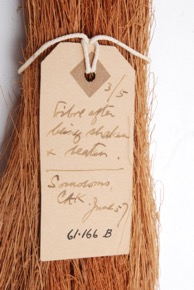 3/5
Fibre after
being shaken
& beaten.
Somosomo,
CAK. June 57
61·166 B